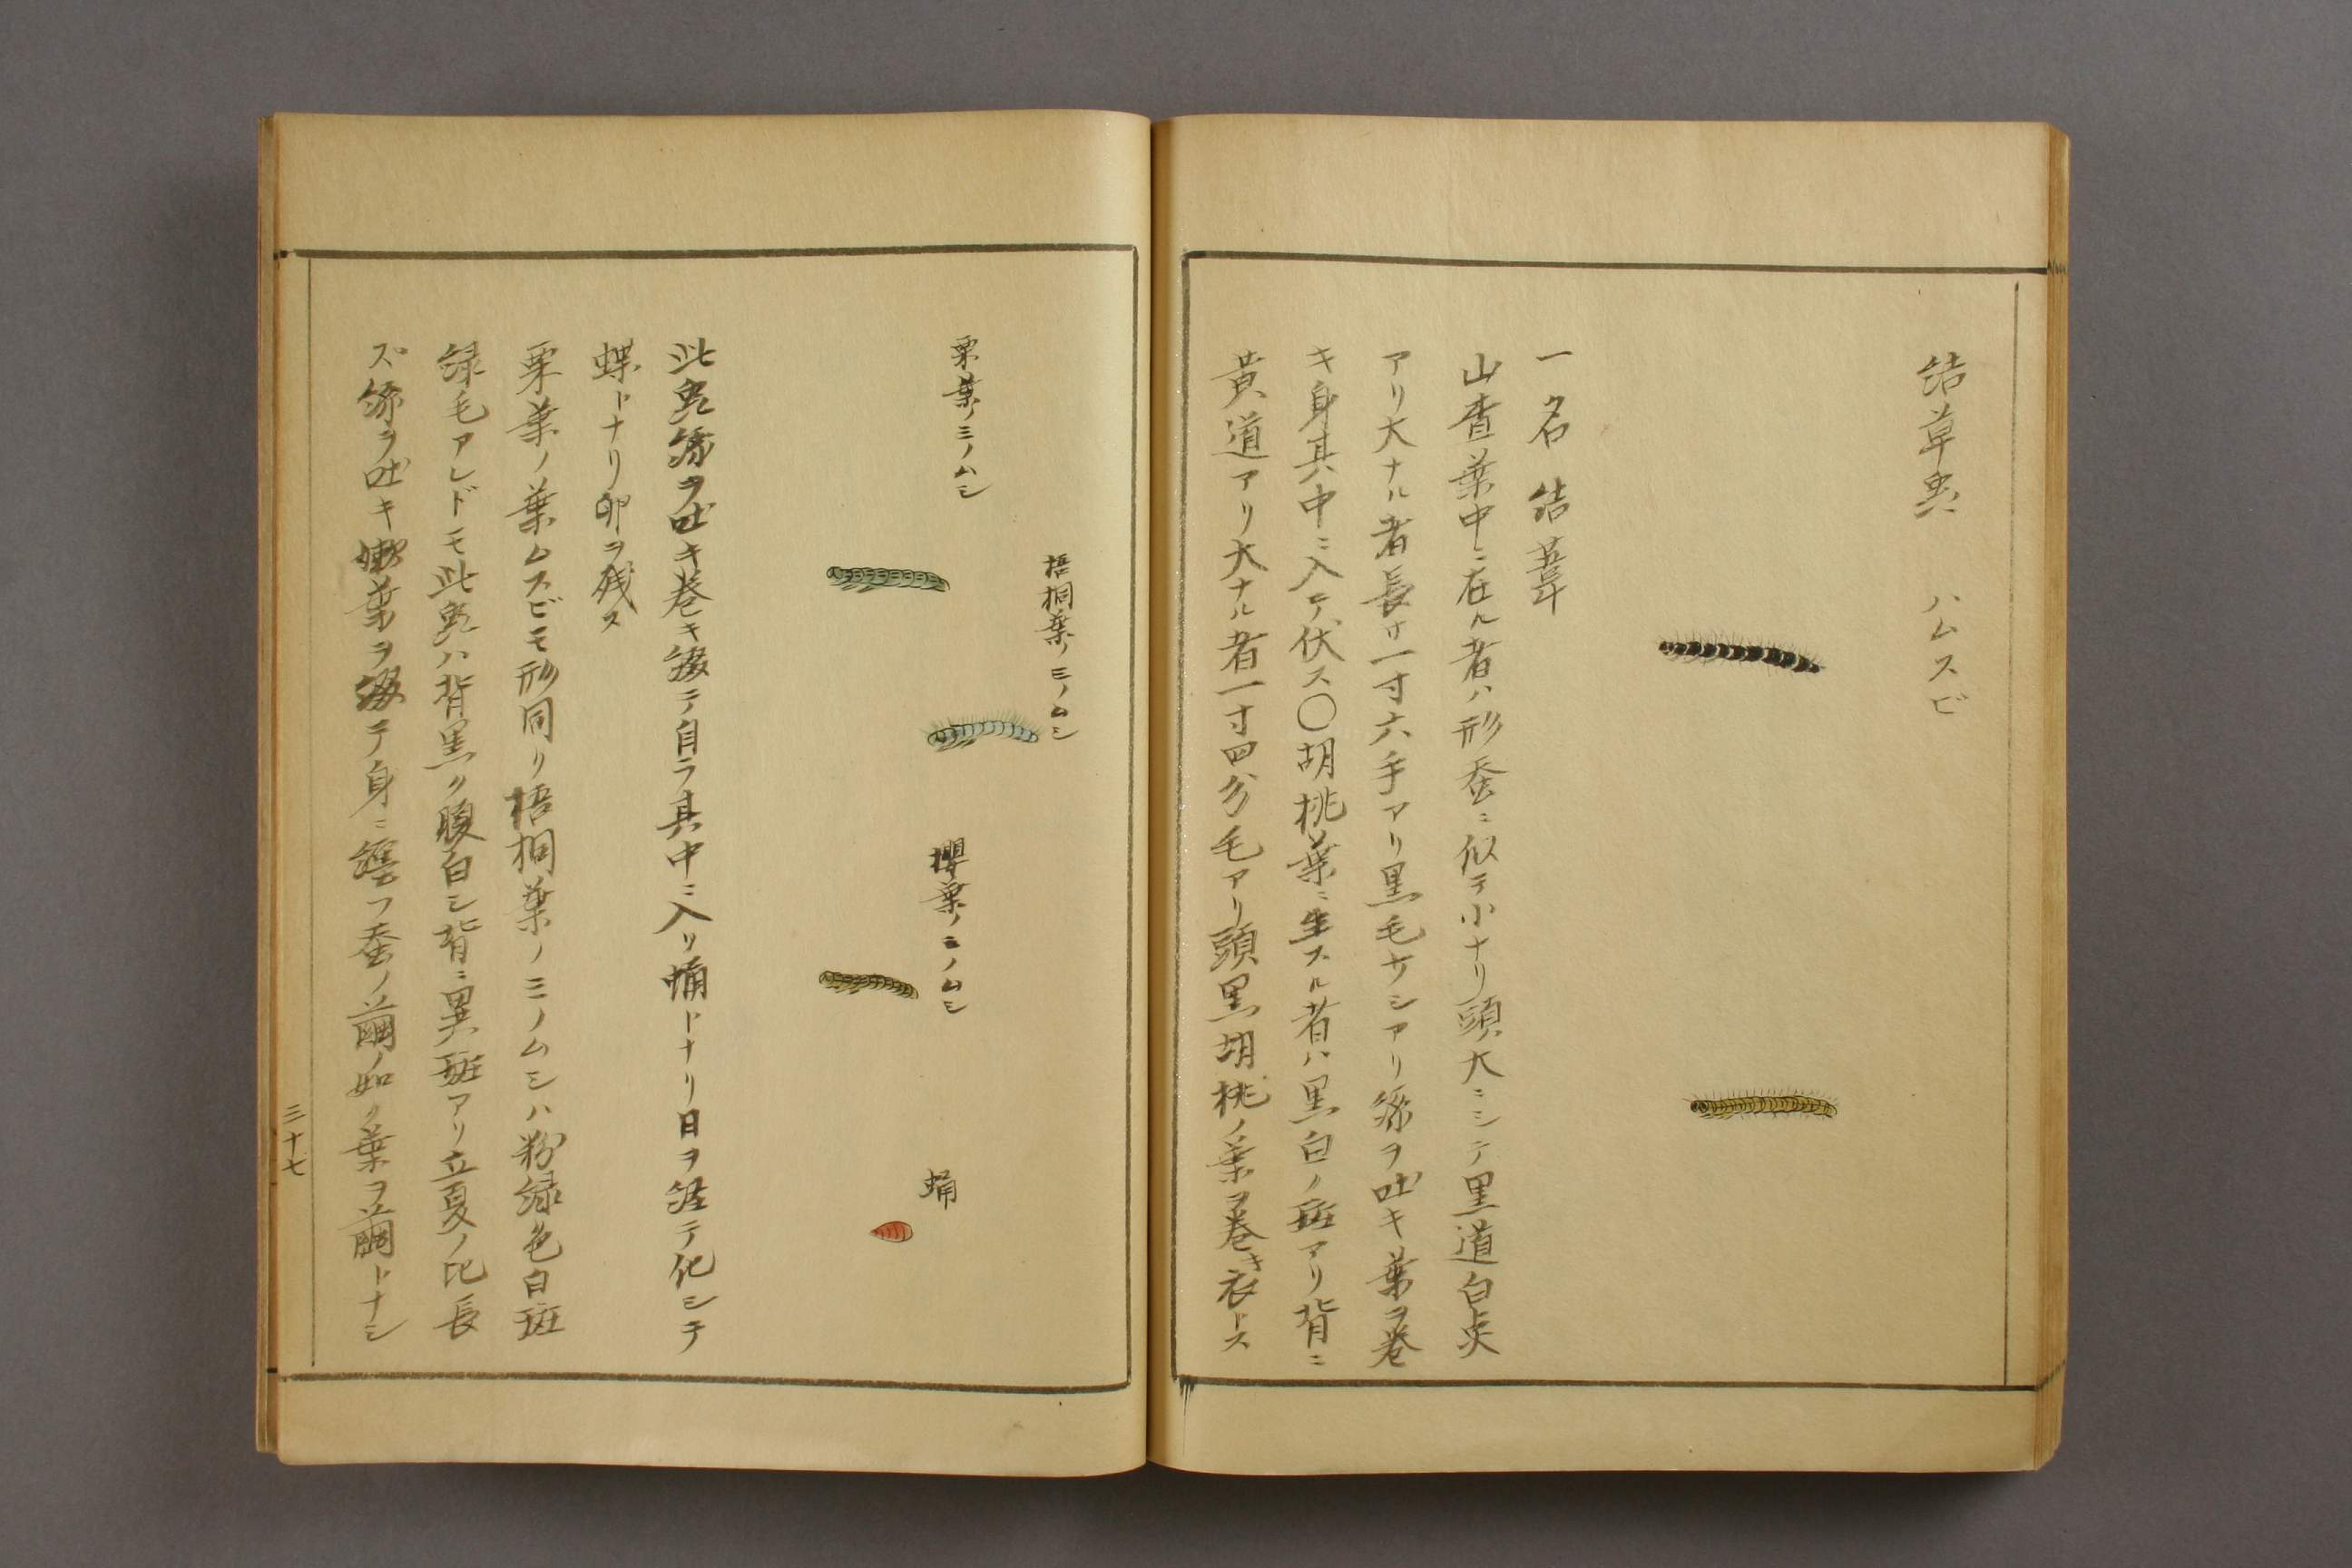 結草虫 ハムスビ
一名 結葦
山査葉中ニ在ル者ハ形蚕ニ似テ小ナリ頭大ニシテ黒道白点
アリ大ナル者長サ一寸六手アリ黒毛ケシアリ絲ヲ吐キ葉ヲ巻
キ身其中ニ入テ伏ス〇胡桃葉ニ生スル者ハ黒白ノ斑アリ背ニ
黄道アリ大ナル者一寸四分毛アリ頭黒胡桃ノ葉ヲ巻キ衣トス
梧桐葉ノミノムシ
栗葉ノミノムシ
櫻葉ノミノムシ
蛹
此虫絲ヲ吐キ巻キ綴テ自ラ其中ニ入リ蛹トナリ日ヲ経テ化シテ
蝶トナリ卵ヲ残ス
栗葉ノ葉ムスビモ形同リ梧桐葉ノミノムシハ粉緑色白斑
緑毛アレドモ此虫ハ背黒ク腹白シ背ニ異斑アリ立夏ノ比長
ズ絲ヲ吐キ嫩葉ヲ綴テ身ニ纏フ蚕ノ繭ノ如ク葉ヲ繭トナシ
三十七